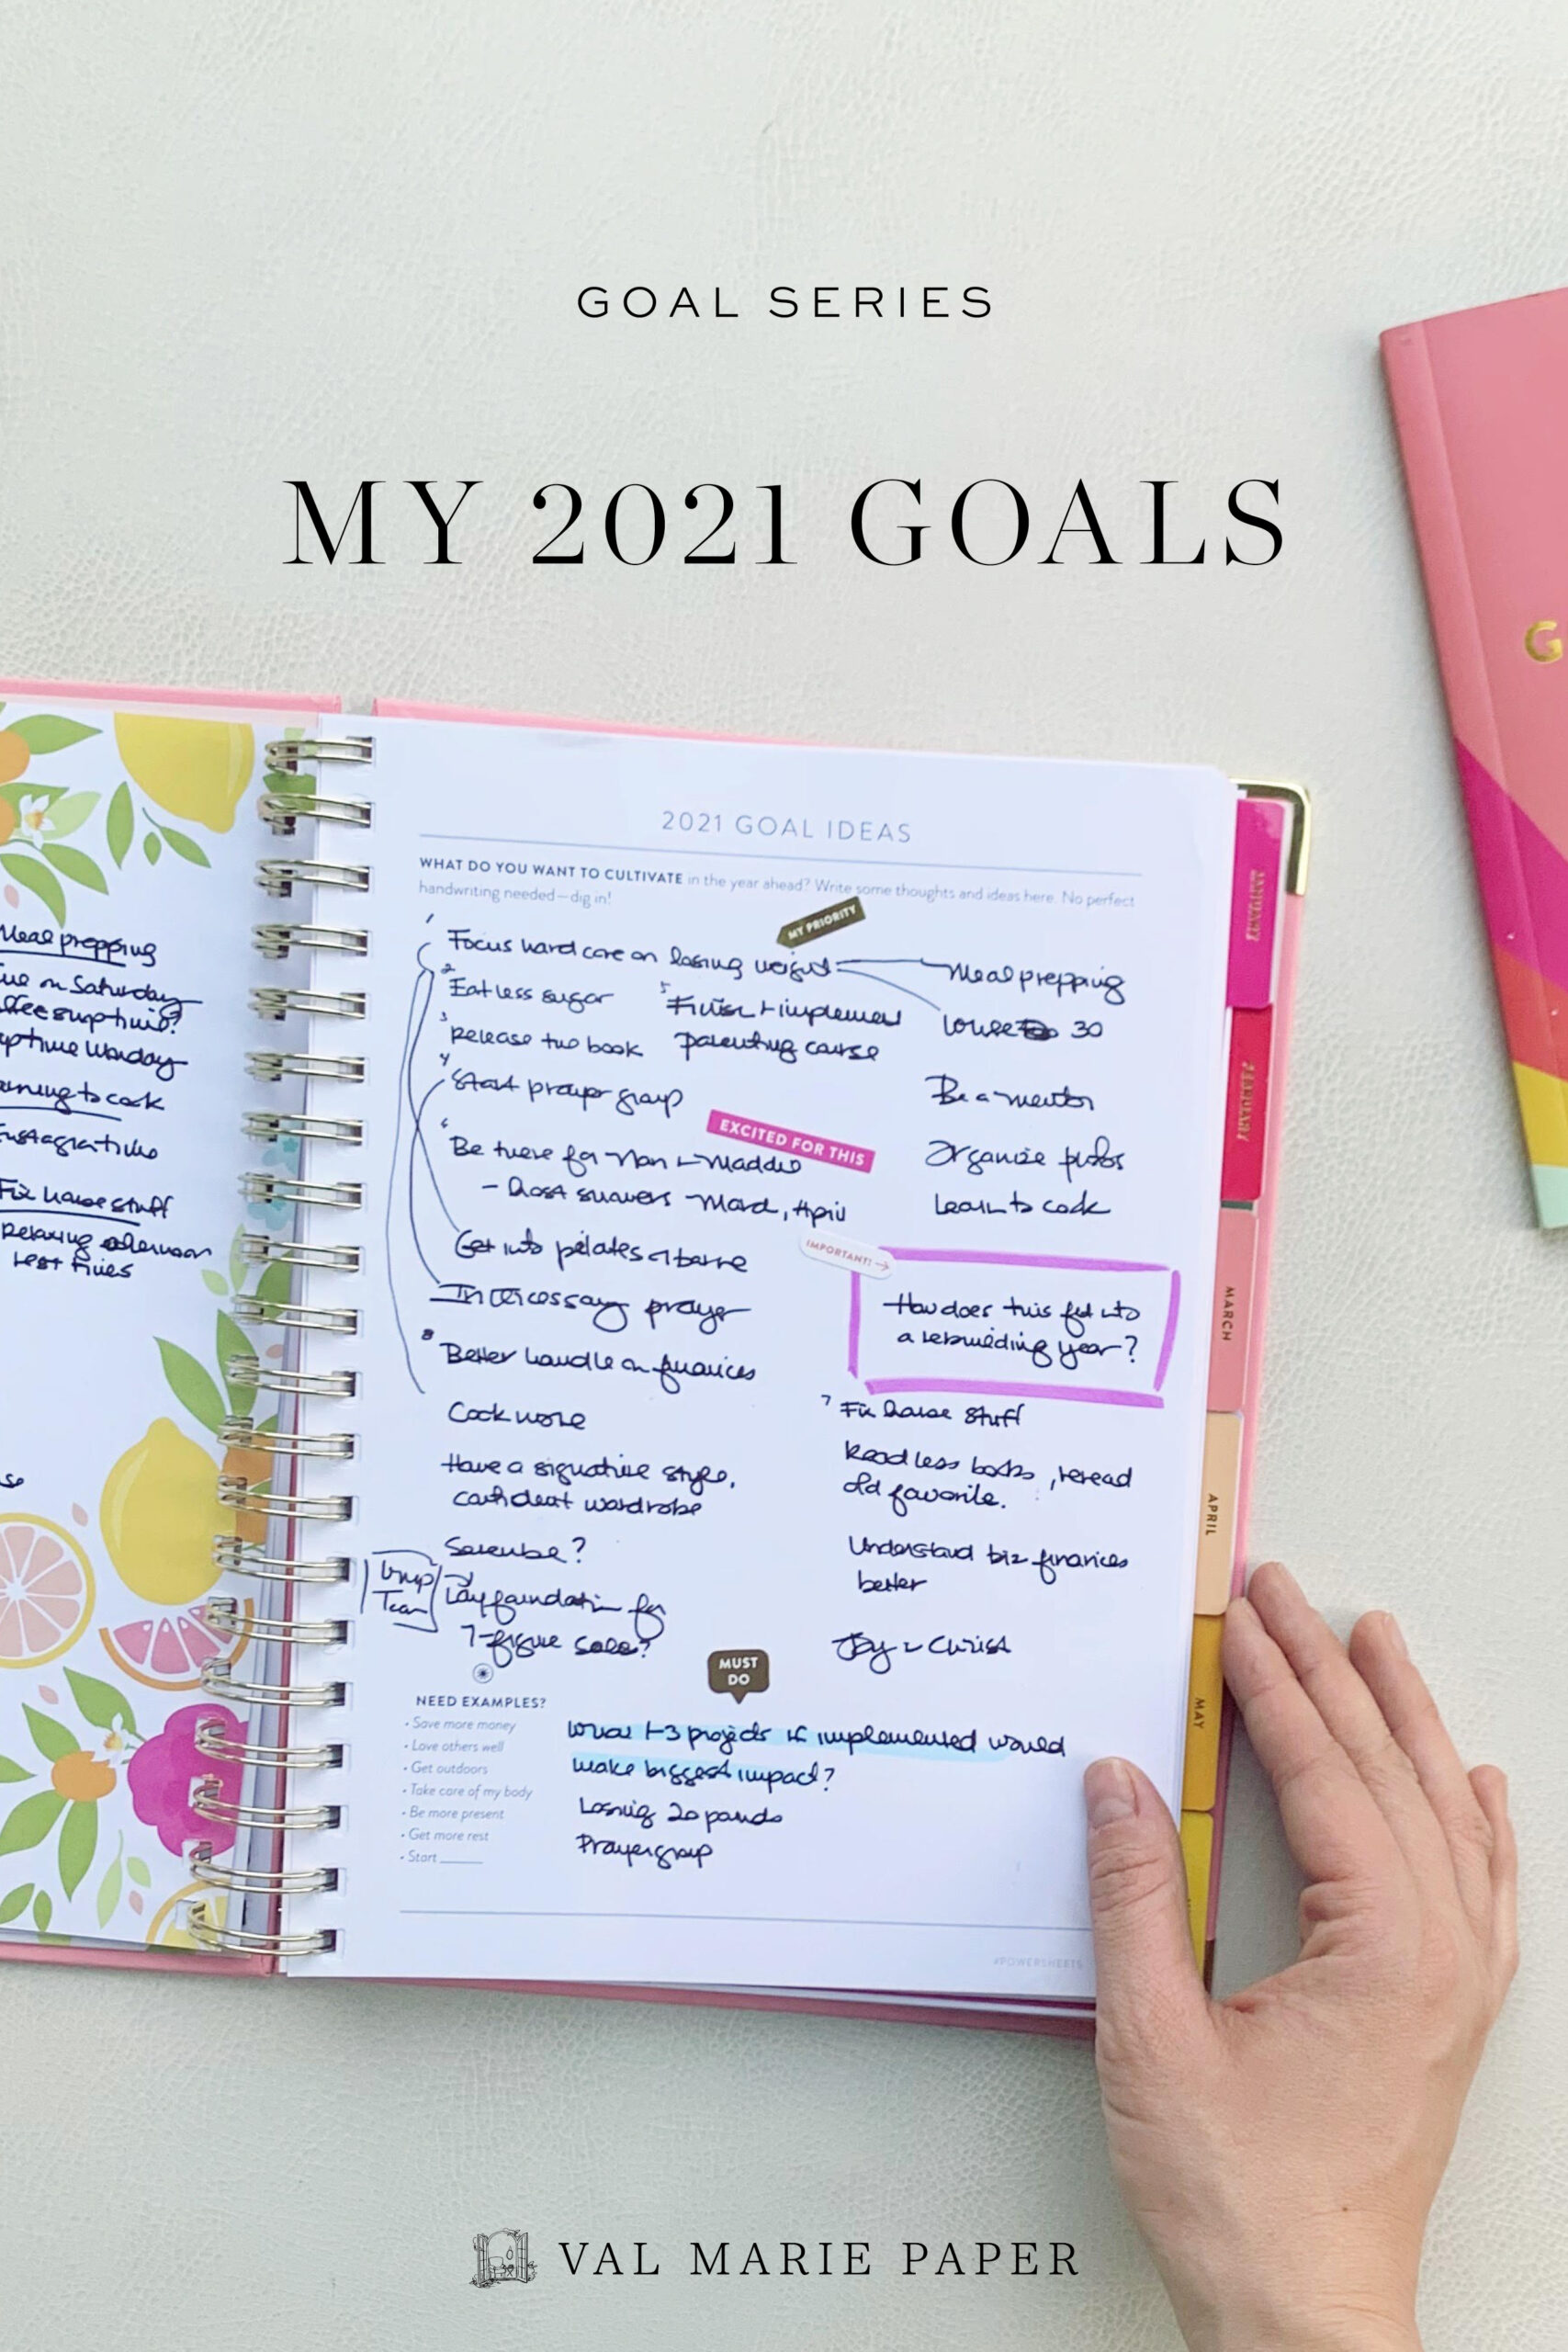 GOAL SERIES
MY 2021 GOALS
G
Meal prepping
on Saturday
to cook
Fix house stuff
Relaxing afternoon
rest times
2021 GOAL IDEAS
WHAT DO YOU WANT TO CULTIVATE in the year ahead? Write some thoughts and ideas here. No perfect
handwriting needed—dig in!
MY PRIORITY
1 Focus hard core on losing weight
Meal prepping
30
2 Eat less sugar
5 Finish + implement
parenting course
3 Release two book
4 Start prayer group
Be a mentor
EXCITED FOR THIS
6 Be there for Nan + Maddie
- host showers - March, April
Organize photos
Learn to cook
Get into pilates or barre
IMPORTANT! →
Intercessory prayer
How does this fit into
a rebuilding year?
8 Better handle on finances
7 Fix house stuff
Cook more
Read less books, reread
old favorite.
Have a signature style,
confident wardrobe
Understand biz finances
better
Lay foundation for
7-figure sale?
Team
Joy in Christ
MUST
DO
NEED EXAMPLES?
• Save more money
• Love others well
• Get outdoors
• Take care of my body
• Be more present
• Get more rest
• Start ______
What 1-3 projects if implemented would
make biggest impact?
Losing 20 pounds
Prayer group
#POWERSHEETS
JANUARY
FEBRUARY
MARCH
APRIL
MAY
VAL MARIE PAPER